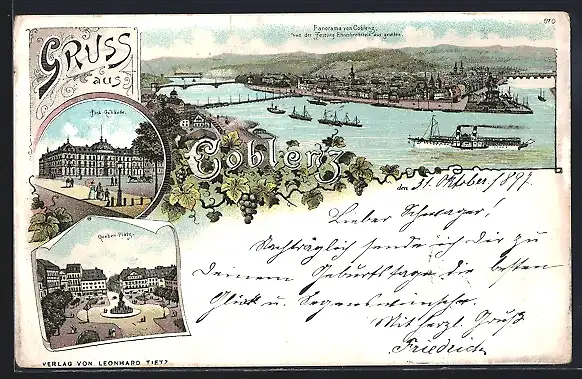 Gruss
aus
Panorama von Coblenz,
von der Festung Ehrenbreitstein aus gesehen.
Post-Gebäude.
Coblenz
den 31. Oktober 1897.
Lieber Schwager!
Nachträglich sende ich Dir zu
Deinem Geburtstage die besten
Glück u. Segenswünsche.
Mit herzl. Gruß
Friedrich
Goeben-Platz.
VERLAG VON LEONHARD TIETZ